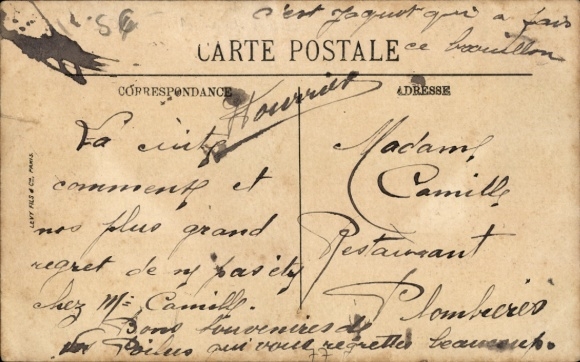 c'est Jaquot qui a fais
ce brouillon
CARTE POSTALE
CORRESPONDANCE
ADRESSE
LEVY FILS & Cie, PARIS
La cuite
commence et
nos plus grand
regret de ny pas éty
chez Me Camille.
Bons Souvenires de
Poilus qui vous regrettes beaucoup.
Madame
Camille
Restaurant
Plombieres
77